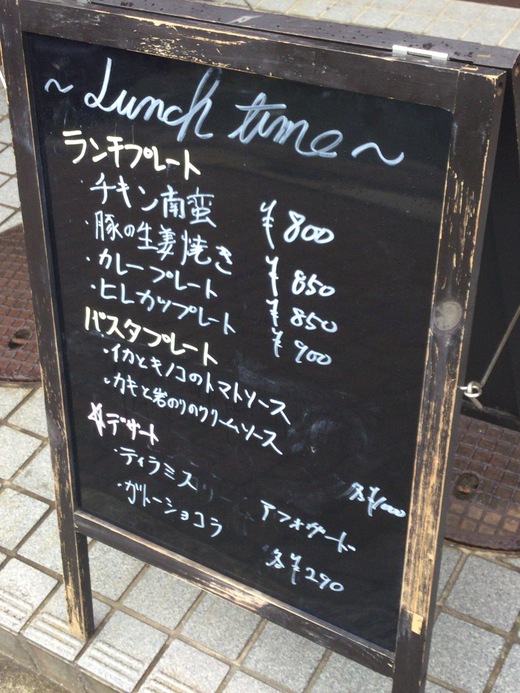 ~ Lunch time ~
ランチプレート
・チキン南蛮 ¥800
・豚の生姜焼き ¥850
・カレープレート ¥850
・ヒレカツプレート ¥900
パスタプレート
・イカとキノコのトマトソース
・カキと岩のりのクリームソース
各¥1000
デザート
・ティラミス アフォガード
・ガトーショコラ 各¥290